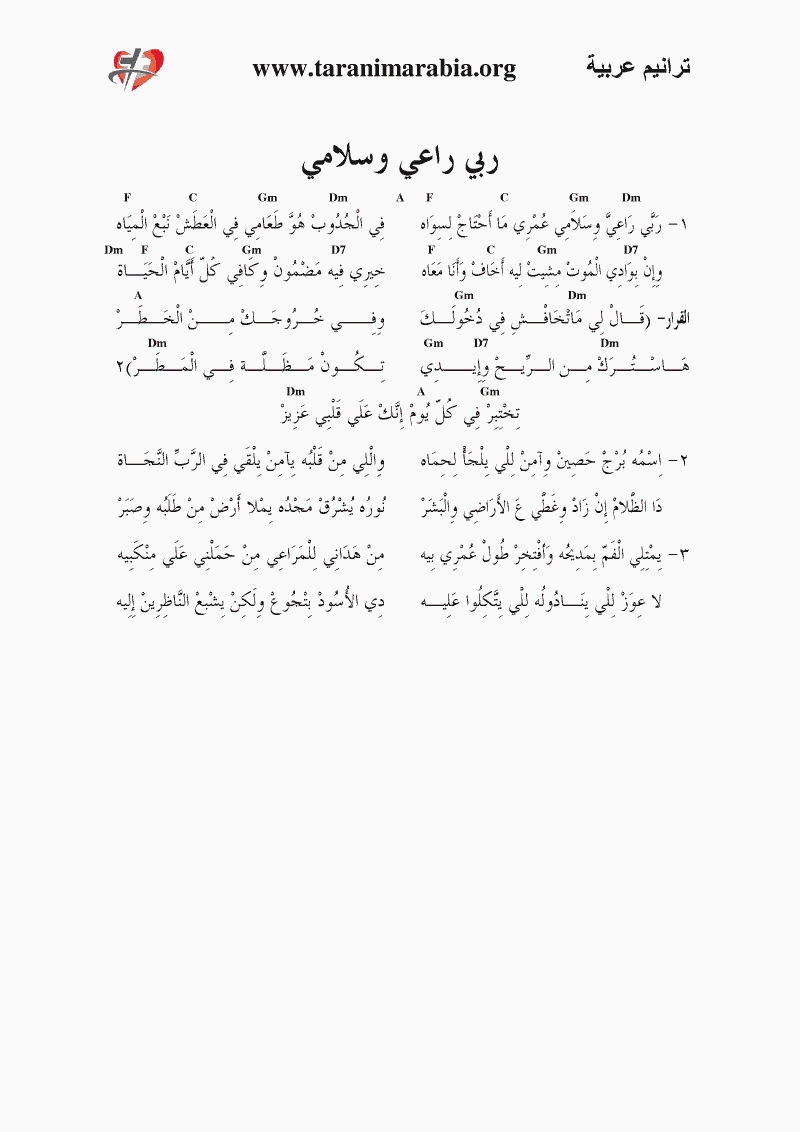 ترانيم عربية www.taranimarabia.org
ربي راعي وسلامي
F C Gm Dm A F C Gm Dm
١- رَبِّي رَاعِيَّ وِسَلاَمِي عُمْرِي مَا أَحْتَاجْ لِسِوَاه فِي الْجُدُوبْ هُوَّ طَعَامِي فِي الْعَطَشْ نَبْعْ الْمِيَاه
Dm F C Gm D7 F C Gm D7
وِإِنْ بِوَادِي الْمُوتْ مِشِيتْ لِيه أَخَافْ وَأَنَا مَعَاه خِيرِي فِيه مَضْمُونْ وِكَافِي كُلّ أَيَّامْ الْحَيَـــاة
A Gm Dm
القرار- (قَـــالْ لِي مَاتْخَافْـــشِ فِي دُخُولَـــكَ وِفِـــي خُـــرُوجَـــكْ مِـــنْ الْخَـــطَـــرْ
Dm Gm D7 Dm
هَـــاسْـــتُـــرَكْ مِـــن الـــرِّيـــحْ وِإِيـــدِي تِـــكُـــونْ مَـــظَـــلَّـــة فِـــي الْمَـــطَـــرْ)٢
Dm A Gm
تِخْتِبِرْ فِي كُلّ يُومْ إِنَّكْ عَلَي قَلْبِي عَزِيزْ
٢- اِسْمُه بُرْجْ حَصِينْ وِآمِنْ لِلْي يِلْجَأْ لِحِمَاه وِالْلِي مِنْ قَلْبُه يِآمِنْ يِلْقَي فِي الرَّبِّ النَّجَـــاة
دَا الظَّلامْ إِنْ زَادْ وِغَطَّي عَ الأَرَاضِي والْبَشَرْ نُورُه يُشْرُقْ مَجْدُه يِمْلا أَرْضْ مِنْ طَلَبُه وِصَبَرْ
٣- يِمْتِلِي الْفَمّ بِمَدِيحُه وَأَفْتِخِرْ طُولْ عُمْرِي بِيه مِنْ هَدَانِي لِلْمَرَاعِي مِنْ حَمَلْنِي عَلَي مِنْكَبِيه
لا عِوَزْ لِلْي يِنَـــادُولُه لِلْي يِتَّكِلُوا عَلِيـــه دِي الأُسُودْ بِتْجُوعْ ولَكِنْ يِشْبَعْ النَّاظِرِينْ إِلِيه